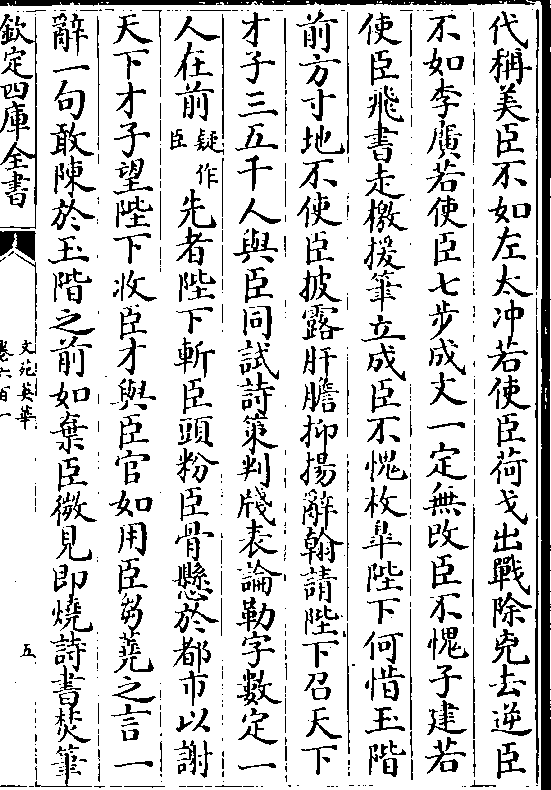 代稱美臣不如左太冲若使臣荷戈出戰除兇去逆臣
不如李廣若使臣七步成文一定無改臣不愧子建若
使臣飛書走檄援筆立成臣不愧枚臯陛下何惜玉階
前方寸地不使臣披露肝膽抑揚辭翰請陛下召天下
才子三五千人與臣同試詩策判牋表論勒字數定一
人在前疑作臣先者陛下斬臣頭粉臣骨懸於都市以謝
天下才子望陛下收臣才與臣官如用臣芻蕘之言一
辭一句敢陳於玉階之前如棄臣微見即燒詩書焚筆
欽定四庫全書
文苑英華
卷六百一
五